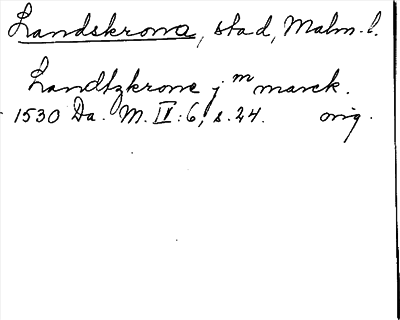 Landskrona, stad, Malm. l.
Landtzkrone j m marck.
1530 Da. M. IV: 6, s. 24. orig.